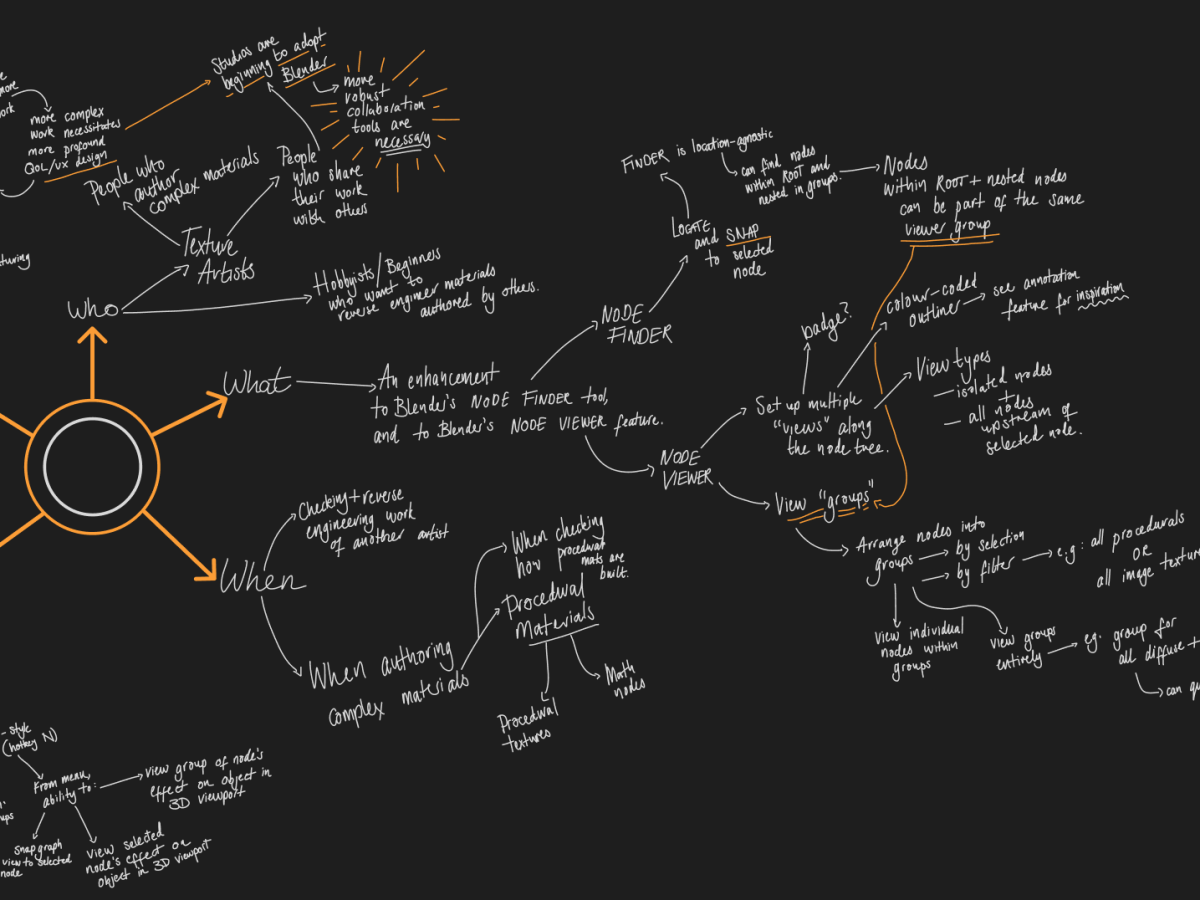 more
more complex
work necessitates
more profound
QoL/UX design
Studios are
beginning to adopt
Blender
more
robust
collaboration
tools are
necessary
People who
author
complex materials
People
who share
their work
with others
Texture
Artists
Who
Hobbyists/Beginners
who want to
reverse engineer materials
authored by others.
What
An enhancement
to Blender's NODE FINDER tool,
and to Blender's NODE VIEWER feature.
NODE
FINDER
LOCATE
and SNAP
to selected
node
FINDER is location-agnostic
can find nodes
within ROOT and
nested in groups.
Nodes
within ROOT + nested nodes
can be part of the same
viewer group
NODE
VIEWER
Set up multiple
"views" along
the node tree.
badge?
colour-coded
outline
see annotation
feature for inspiration
View types
— isolated nodes
+
— all nodes
upstream of
selected node.
View "groups"
Arrange nodes into
groups
by selection
by filter
e.g: all procedurals
OR
all image
View individual
nodes within
groups
view groups
entirely
eg. group for
all diffuse +
can
When
Checking + reverse
engineering work
of another artist
When authoring
complex materials
When checking
how procedural
mats are
built.
Procedural
Materials
Procedural
textures
Math
nodes
-style
(hotkey N)
From menu,
ability to:
view group of node's
effect on object in
3D viewport
snap graph
view to selected
node
view selected
node's effect on
object in 3D viewport